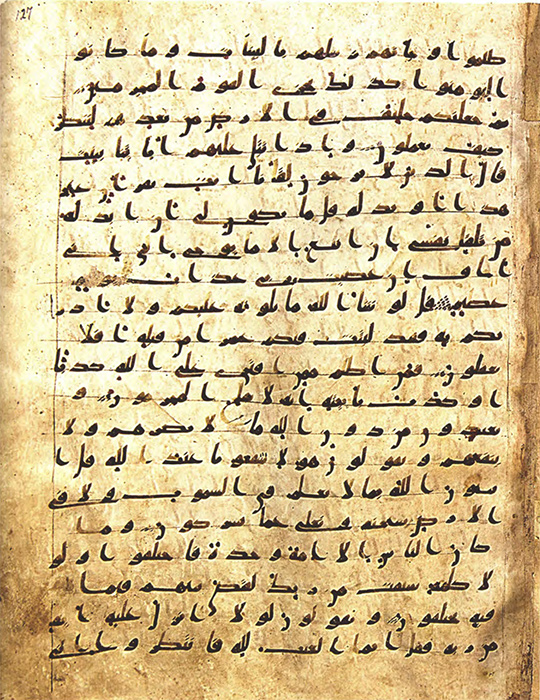 127
ظلموا و جاتهم رسلهم بالبينات و ما كانو
ا ليومنوا كذلك نجزي القوم المجرمين
ثم جعلنكم خليف في الارض من بعدهم لننظر
كيف تعملون و اذا تتلى عليهم اياتنا بينت
قال الذين لا يرجون لقانا ايت بقران غير
هذا او بدله قل ما يكون لي ان ابدله
من تلقاي نفسي ان اتبع الا ما يوحى الي اني
اخاف ان عصيت ربي عذاب يوم
عظيم قل لو شا الله ما تلوته عليكم و لا ادر
يكم به فقد لبثت فيكم عمرا من قبله افلا
تعقلون فمن اظلم ممن افترى على الله كذبا
او كذب بايته انه لا يفلح المجرمون و
يعبدون من دون الله ما لا يضرهم و لا
ينفعهم و يقولون هولا شفعونا عند الله قل ا
تنبون الله بما لا يعلم في السموت و لا في
الارض سبحنه و تعلى عما يشركون و ما
كان الناس الا امة وحدة فاختلفوا و لو
لا كلمة سبقت من ربك لقضي بينهم فيما
فيه يختلفون و يقولون لولا انزل عليه اية
من ربه فقل انما الغيب لله فانتظروا اني